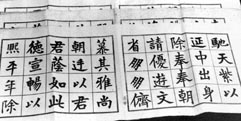 馳天紫以
延中出身
除奉奉朝
請優遊文
省多多儕
其雅尚
朝廷以君
君蔭如此
德宣暢以
熙平年除